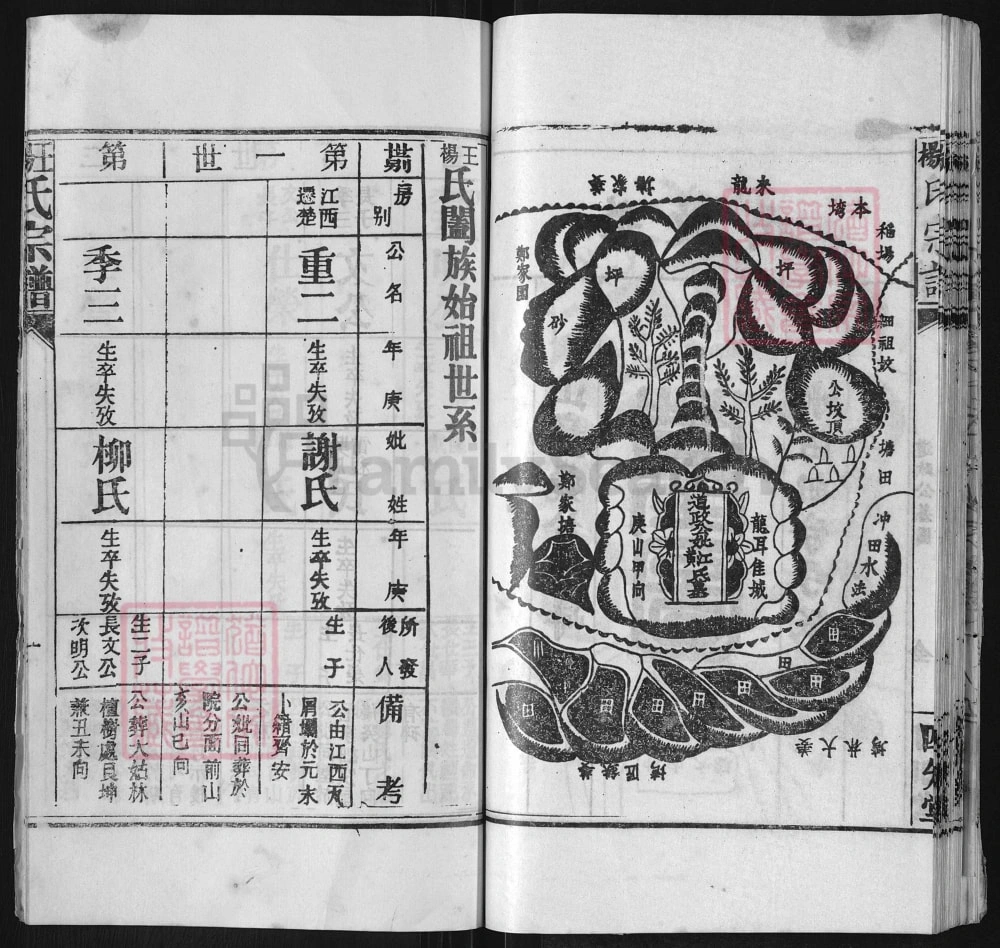 楊氏宗譜
四知堂
來龍
本塆
稻場
祖墳
塘田
公坟頂
坪
坪
砂
鄭家園
鄭家塘
龍耳佳城
庚山甲向
冲田水法
田
田
田
田
田
田
王楊氏闔族始祖世系
房別
公名
年庚
妣姓
年庚
所發後人
備考
第一世
江西遷楚
重二
生卒失攷
謝氏
生卒失攷
生子
公由江西瓦屑壩於元末
小籍齊安
公妣同葬於
院分面前山
亥山巳向
第
季三
生卒失攷
柳氏
生卒失攷
生二子
長文公
次明公
公葬大姑林
檀樹處艮坤
兼丑未向
汪氏宗譜